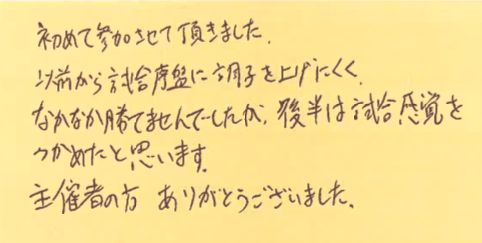 初めて参加させて頂きました.
以前から試合序盤に調子を上げにくく、
なかなか勝てませんでしたが、後半は試合感覚を
つかめたと思います。
主催者の方 ありがとうございました。